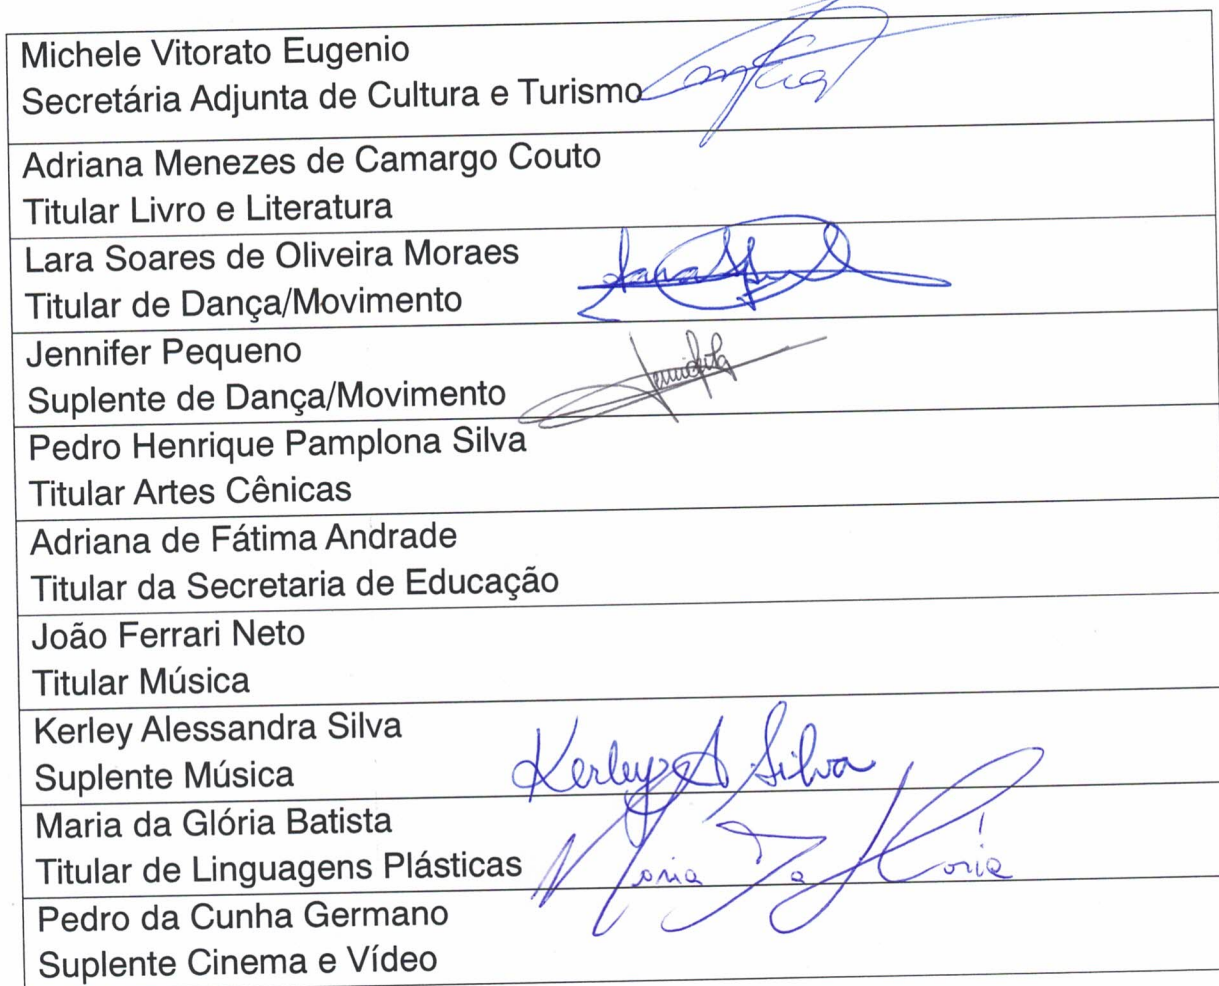 Michele Vitorato Eugenio
Secretária Adjunta de Cultura e Turismo
Adriana Menezes de Camargo Couto
Titular Livro e Literatura
Lara Soares de Oliveira Moraes
Titular de Dança/Movimento
Jennifer Pequeno
Suplente de Dança/Movimento
Pedro Henrique Pamplona Silva
Titular Artes Cênicas
Adriana de Fátima Andrade
Titular da Secretaria de Educação
João Ferrari Neto
Titular Música
Kerley Alessandra Silva
Suplente Música
Kerley A Silva
Maria da Glória Batista
Titular de Linguagens Plásticas
Maria da Glória
Pedro da Cunha Germano
Suplente Cinema e Vídeo